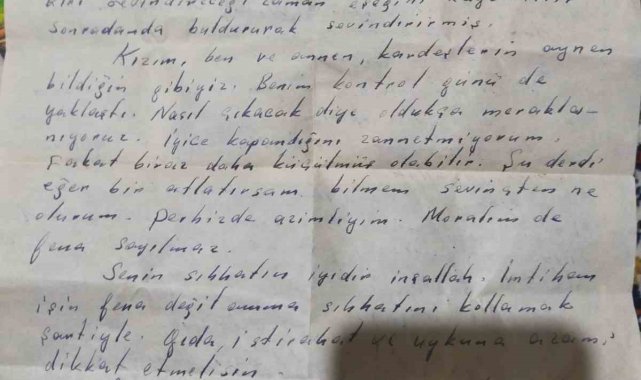 sevindireceği zaman eşeğini
sonradanda buldurarak sevindirirmiş.
Kızım, ben ve annen, kardeşlerin aynen
bildiğin gibiyiz. Benim kontrol günü de
yaklaştı. Nasıl çıkacak diye oldukça merakla-
nıyoruz. İyice kapandığını zannetmiyorum.
Fakat biraz daha küçülmüş olabilir. Şu derdi
eğer bir atlatırsam bilmem sevinçten ne
olurum. Perhizde azimliyim. Moralim de
fena sayılmaz.
Senin sıhhatin iyidir inşallah. İmtihan
için fena değil amma sıhhatini kollamak
şartiyle. Gıda, istirahat ve uykuna azami
dikkat etmelisin.